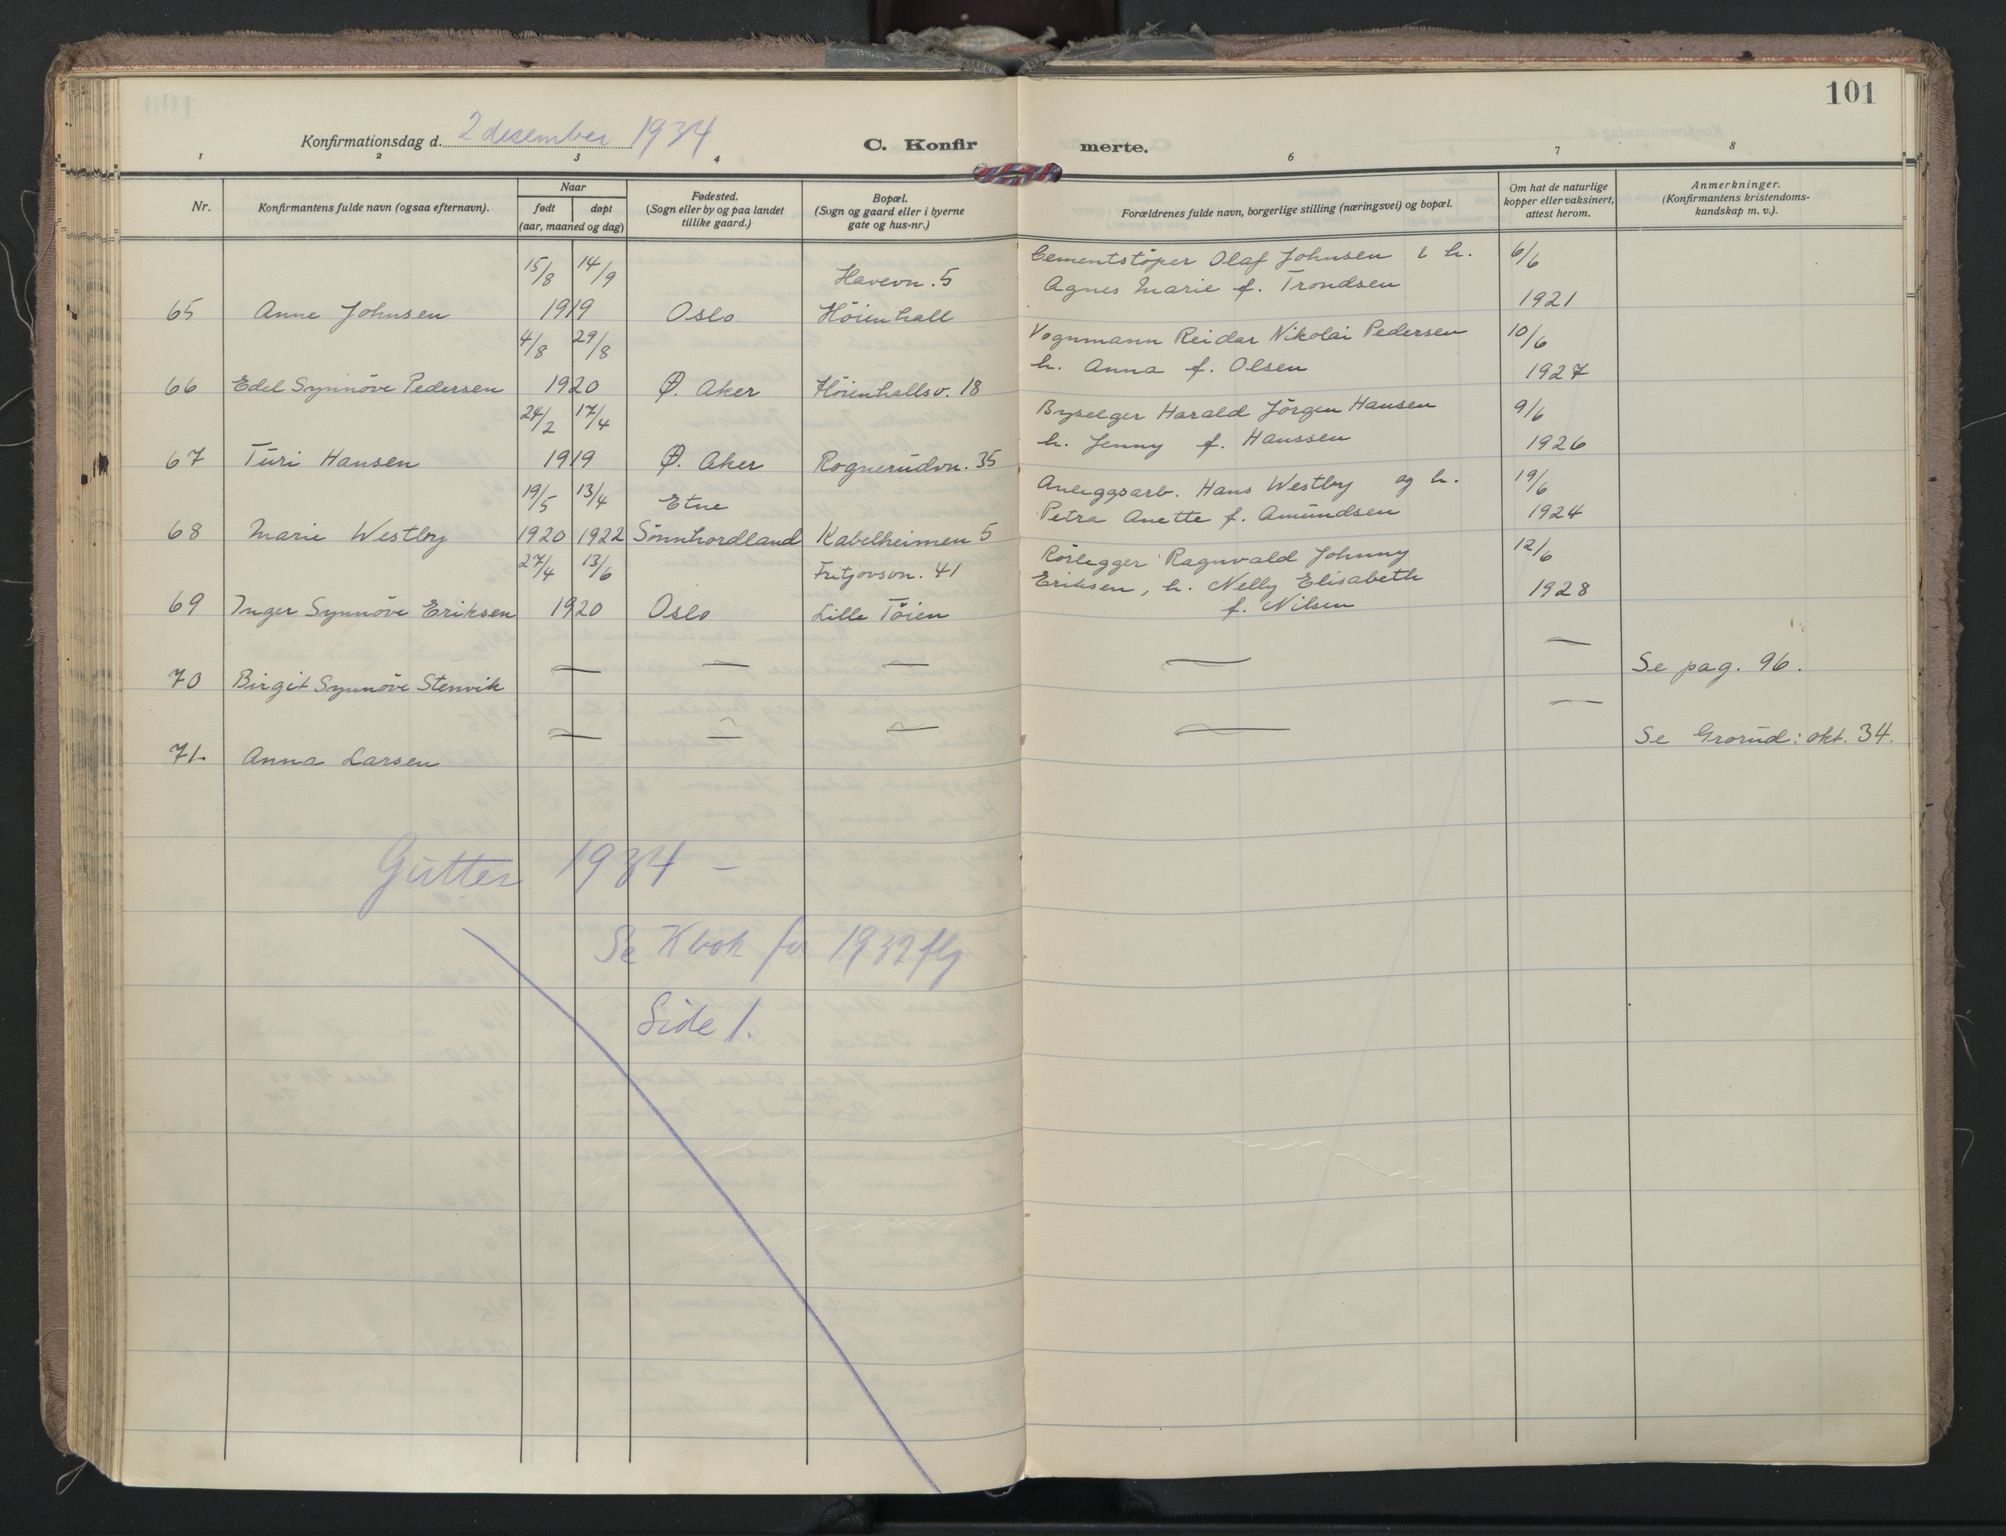 101
Konfirmationsdag d. 2 desember 1934
C. Konfirmerte.
1 2 3 4 5 6 7 8
Nr.
Konfirmantens fulde navn (ogsaa efternavn).
Naar
født døpt
(aar, maaned og dag)
Fødested.
(Sogn eller by og paa landet
tillike gaard.)
Bopæl.
(Sogn og gaard eller i byerne
gate og hus-nr.)
Forældrenes fulde navn, borgerlige stilling (næringsvei) og bopæl.
Om hat de naturlige
kopper eller vaksinert,
attest herom.
Anmerkninger.
(Konfirmantens kristendoms-
kundskap m. v.).
15/8 14/9 Havevn. 5 Cementstöper Olaf Johnsen & h. 6/6
65 Anne Johnsen 1919 Oslo Höienhall Agnes Marie f. Trondsen 1921
4/8 29/8 Vognmann Reidar Nikolai Pedersen 10/6
66 Edel Synnöve Pedersen 1920 Ø. Aker Höienhallsv. 18 h. Anna f. Olsen 1927
24/2 17/4 Byselger Harald Jörgen Hansen 9/6
67 Turi Hansen 1919 Ø. Aker Rognerudvn. 35 h. Jenny f. Hanssen 1926
19/5 13/4 Etne Anleggsarb. Hans Westby og h. 19/6
68 Marie Westby 1920 1922 Sönnhordland Kabelheimen 5 Petra Anette f. Amundsen 1924
27/4 13/6 Fritjovsvn. 41 Rörlegger Ragnvald Johnny 12/6
69 Inger Synnöve Eriksen 1920 Oslo Lille Töien Eriksen, h. Nelly Elisabeth 1928
f. Nilsen
70 Birgit Synnöve Stenvik — — — — — Se pag. 96.
71. Anna Larsen — — — — — Se Grorud: okt. 34.
Gutter 1934 –
Se Kbok for 1932 flg
Side 1.